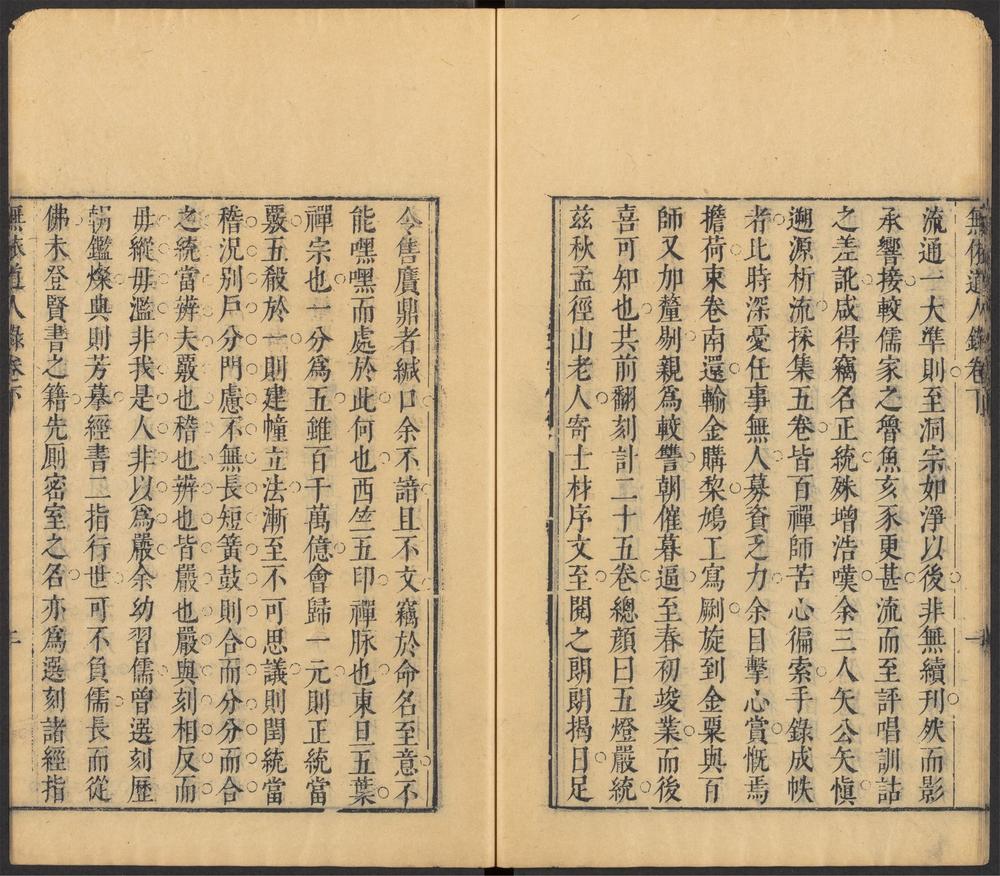 無依道人錄卷下
流通一大準則至洞宗如淨以後非無續刊然而影
承響接較儒家之魯魚亥豕更甚流而至評唱訓詁
之差訛咸得竊名正統殊增浩嘆余三人矢公矢愼
遡源析流採集五卷皆百禪師苦心徧索手錄成帙
者比時深憂任事無人募資乏力余目擊心賞慨焉
擔荷束卷南還輸金購棃鳩工寫劂旋到金粟與百
師又加釐剔親爲較讐朝催暮逼至春初竣業而後
喜可知也共前翻刻計二十五卷總顏曰五燈嚴統
兹秋孟徑山老人寄士材序文至閱之朗朗揭日足
令售贗鼎者緘口余不諳且不文竊於命名至意不
能嘿嘿而處於此何也西竺五印禪脉也東旦五葉
禪宗也一分爲五雖百千萬億會歸一元則正統當
覈五殺於一則建幢立法漸至不可思議則閏統當
稽況別戶分門慮不無長短簧鼓則合而分分而合
之統當辨夫覈也稽也辨也皆嚴也嚴與刻相反而
毋縱毋濫非我是人非以爲嚴余幼習儒曾選刻歷
朝鑑燦典則芳摹經書二指行世可不負儒長而從
佛未登賢書之籍先厠密室之名亦爲選刻諸經指
無依道人錄卷下
二